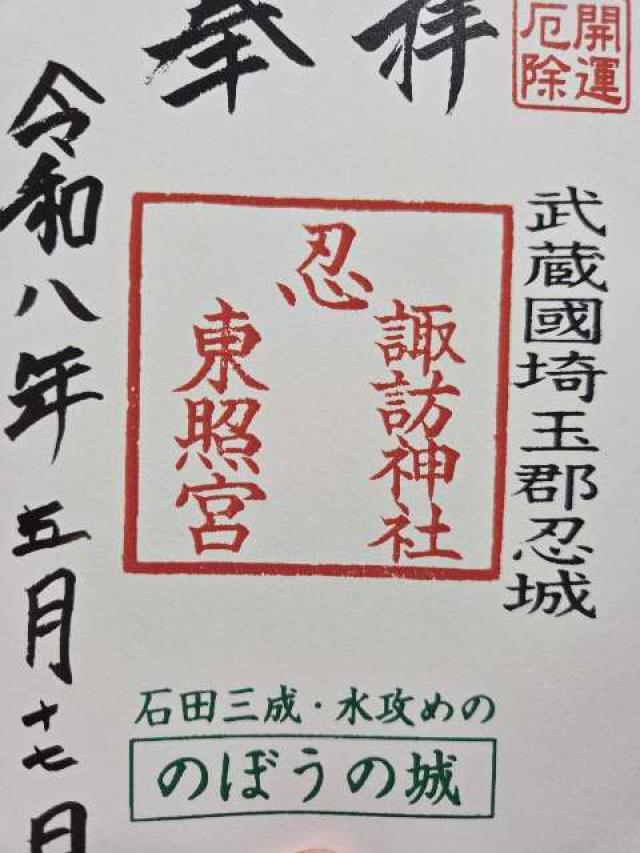 奉拝
開運
厄除
武蔵國埼玉郡忍城
忍
諏訪神社
東照宮
令和八年五月十七日
石田三成・水攻めの
のぼうの城